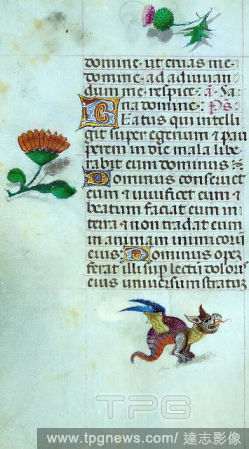 domine ut eruas me.
domine ad adiuvan
dum me respice. a. Sa
na domine. Ps
Beatus qui intelli
git super egenum & pau
perem in die mala libe
rabit eum dominus.
Dominus conservet
eum & vivificet eum &
beatum faciat eum in
terra & non tradat eum
in animam inimicoru
eius. Dominus opez
ferat illi sup lectu doloris
eius universum stratu
TPG
www.tpgnews.com/達志影像